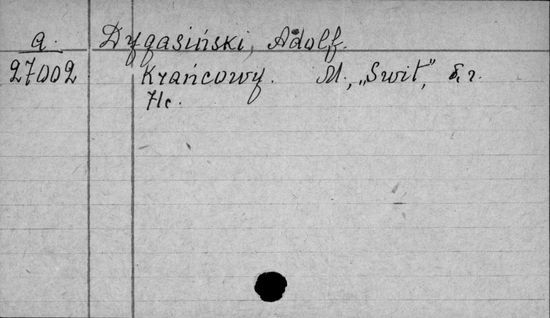 a. Dygasiński, Adolf.
27002 Krańcowy. M., „Swit”, б. г.
71 с.